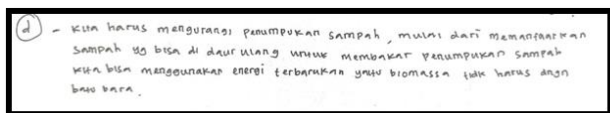 d - Kita harus mengurangi penumpukan sampah, mulai dari memanfaatkan
sampah yg bisa di daur ulang untuk membakar penumpukan sampah
kita bisa menggunakan energi terbarukan yaitu biomassa tidk harus dngn
batu bara.